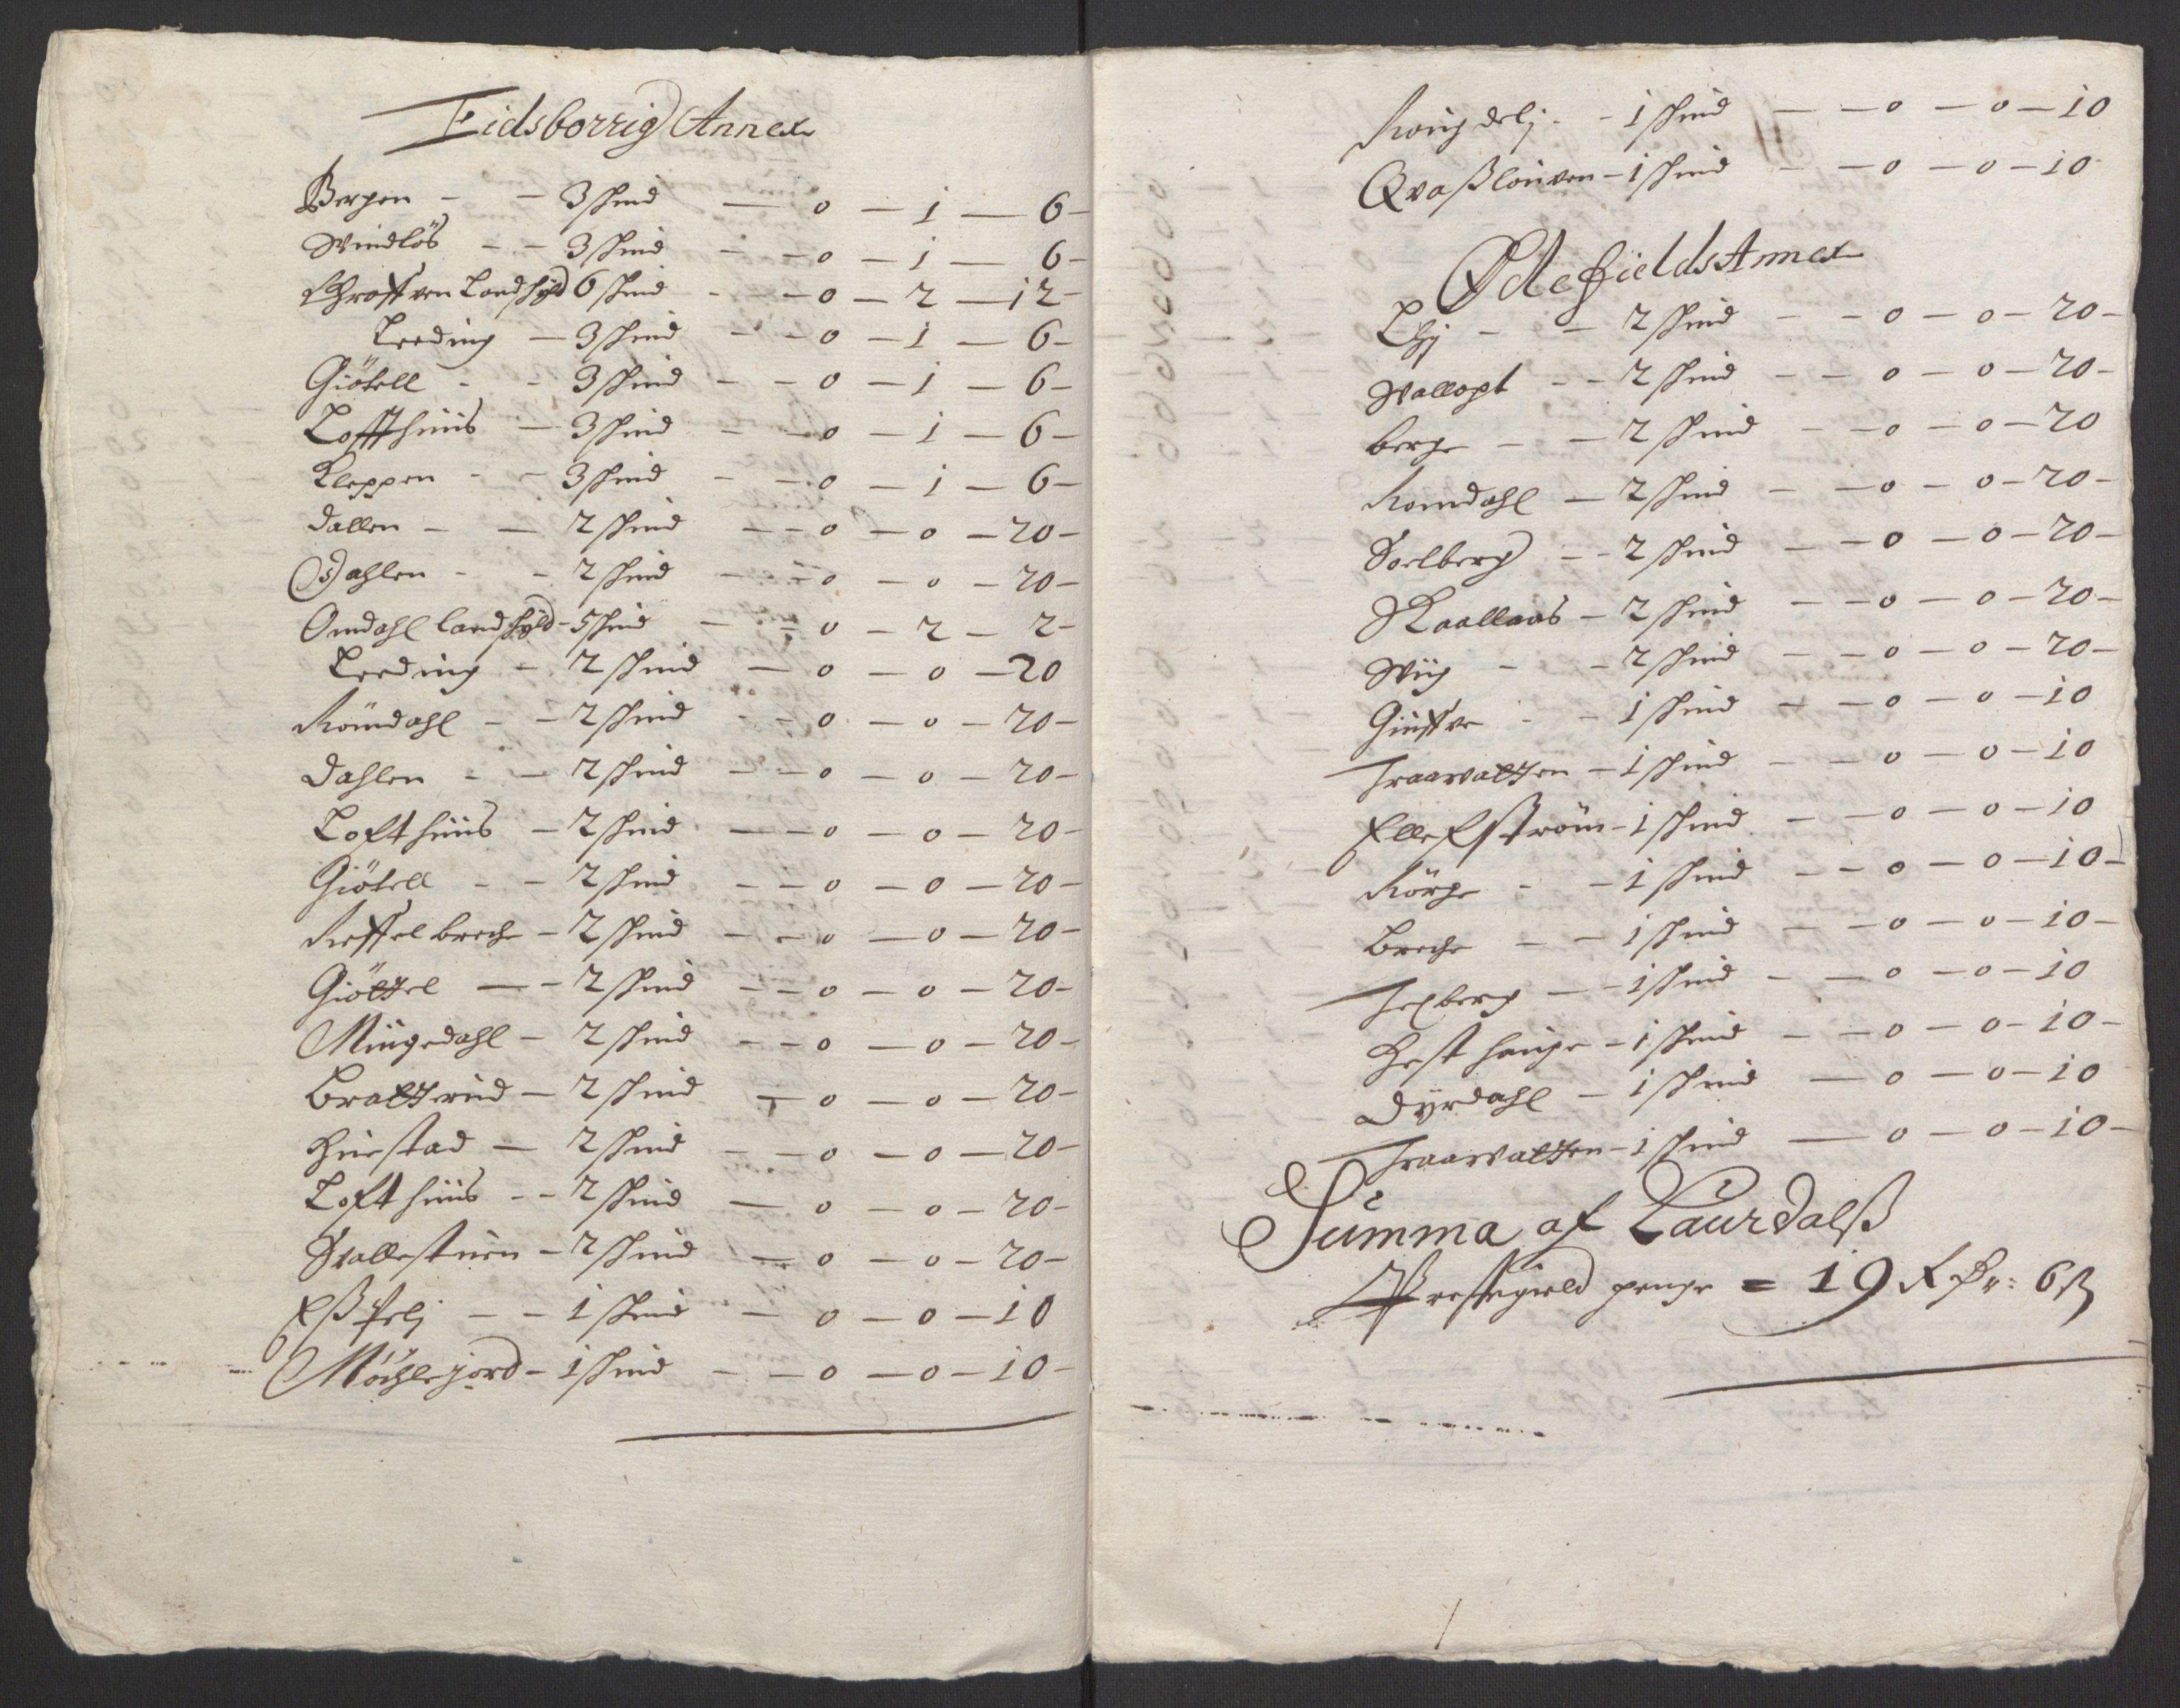 Eidsborrig Annex
Bergen - - 3 skind — 0 — 1 — 6 -
Windlös - - 3 skind - - 0 — 1 — 6 -
Skraffven Landskÿld 6 skind - - 0 — 2 — 12 -
Leeding — 3 skind - - 0 — 1 — 6 -
Giötell - - 3 skind - - 0 — 1 — 6 -
Loffthuus — 3 skind - - 0 — 1 — 6 -
Kleppen - - 3 skind - - 0 — 1 — 6 -
Dallen - — 2 skind - - 0 — 0 — 20 -
Dahlen - - 2 skind - - 0 — 0 — 20 -
Omdahl landskÿld - 5 skind - - 0 — 2 — 2 -
Leeding - 2 skind — 0 — 0 — 20
Römdahl - - 2 skind - - 0 — 0 — 20 -
Dahlen - - 2 skind - - 0 — 0 — 20 -
Lofthuus — 2 skind — - 0 — 0 — 20 -
Giötell - - 2 skind - - 0 — 0 — 20 -
Reffelbreche - 2 skind - - 0 — 0 — 20 -
Giöttel — - 2 skind - - 0 — 0 — 20 -
Mungedahl - 2 skind - - 0 — 0 — 20 -
Bratterud — 2 skind — 0 — 0 — 20 -
Huestad — 2 skind - - 0 — 0 — 20 -
Lofthuus - - 2 skind — 0 — 0 — 20 -
Wallestuen - 2 skind — 0 — 0 — 20 -
Eßpelj - - 1 skind — 0 — 0 — 10
Möchlejord - 1 skind - - 0 — 0 — 10 -
Roug delj - - 1 skind — - 0 0 — 10
Qvaßlouven - 1 skind - - 0 — 0 — 10
Ødefieldsannex
Lhj - - 2 skind - - 0 — 0 — 20 -
Wallopt - - 2 skind - - 0 — 0 — 20 -
berge - - 2 skind - - 0 — 0 — 20
Romdahl — 2 skind - - 0 — 0 — 20 -
Soelberg - - 2 skind - - 0 — 0 — 20 -
Kaallaas - 2 skind - - 0 — 0 — 20 -
Wiig - - 2 skind - - 0 — 0 — 20 -
Giuffve - - 1 skind - - 0 — 0 — 10
Traawatten - 1 skind - - 0 — 0 — 10
Ellefström - 1 skind - - 0 — 0 — 10
Rörge - - 1 skind - - 0 — 0 — 10 -
Breche - - 1 skind - - 0 — 0 — 10 -
Texberg - - 1 skind - - 0 — 0 — 10
Hesthauge - 1 skind - - 0 — 0 — 10 -
Dÿrdahl - 1 skind — 0 — 0 — 10
Traawatten - 1 skind — 0 — 0 — 10 -
Summa af Laurdalß
Prestegield penge = 19 Rdr: 6 ß